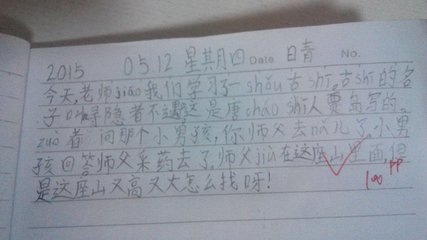 2015 05 12 星期四 Date 日青 No.
今天,老师jiāo我们学习了一shǒu古shī。古shī的名
子叫寻隐者不遇这是唐cháo shī人贾岛写的。
zuò者问那个小男孩,你师父去nǎ儿了,小男
孩回答师父采药去了,师父jiù在这座山里面,但
是这座山又高又大怎么找呀!
100 pp